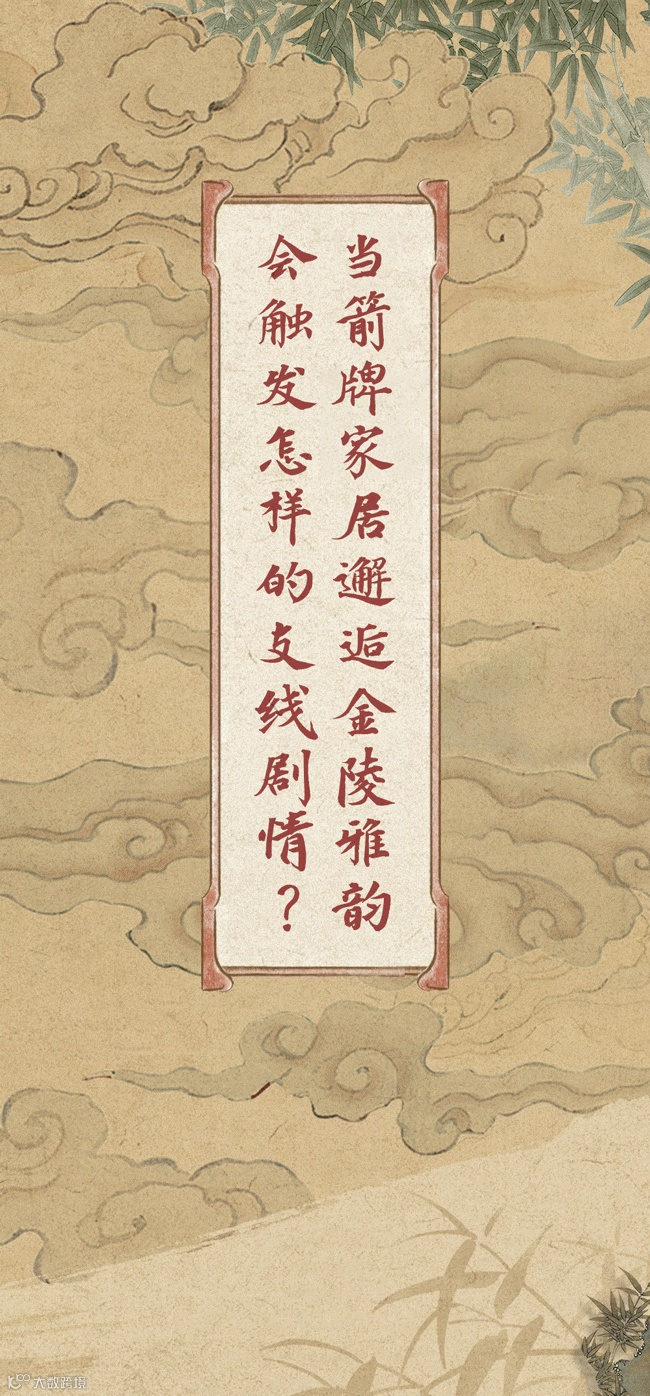 当箭牌家居邂逅金陵雅韵
会触发怎样的支线剧情？
大数跨境